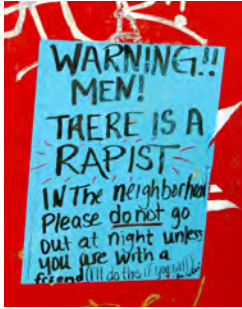 WARNING!!
MEN!
THERE IS A
RAPIST
IN The neighborhood
Please do not go
out at night unless
you are with a
friend (I'll do this if you will)